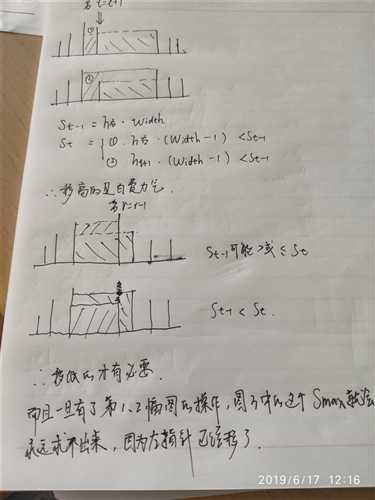 若 l=l+1
①
①
St-1 = h右 · width
St = ① h右 · (width-1) < St-1
② hl+1 · (width-1) < St-1
∴移高的是白费力气.
若 r=r-1
St-1 可能 > 或 ≤ St
St-1 < St.
∴移低的才有必要.
而且一旦有了第1、2幅图的操作，图3中的这个 Smax 就
永远求不出来，因为左指针已经移了.
2019/6/17 12:16